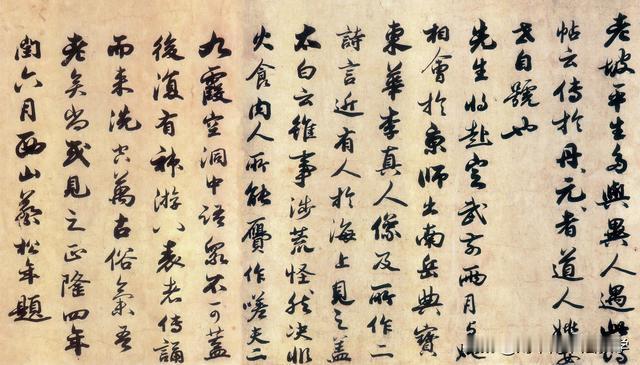 老坡平生多與異人遇此詩
帖云傳於丹元者道人姚安
世自號也
先生將赴定武前兩月与姚
相會於京師出南岳典寶
東華李真人像及所作二
詩言近有人於海上見之盖
太白云雖事涉荒怪然决非
火食肉人所能贋作嗟夫二
九霞空洞中語衆不可蓋
後復有神游八表者傳誦
而来洗空萬古俗氣吾
老矣尚或見之正隆四年
閏六月西山蔡松年題